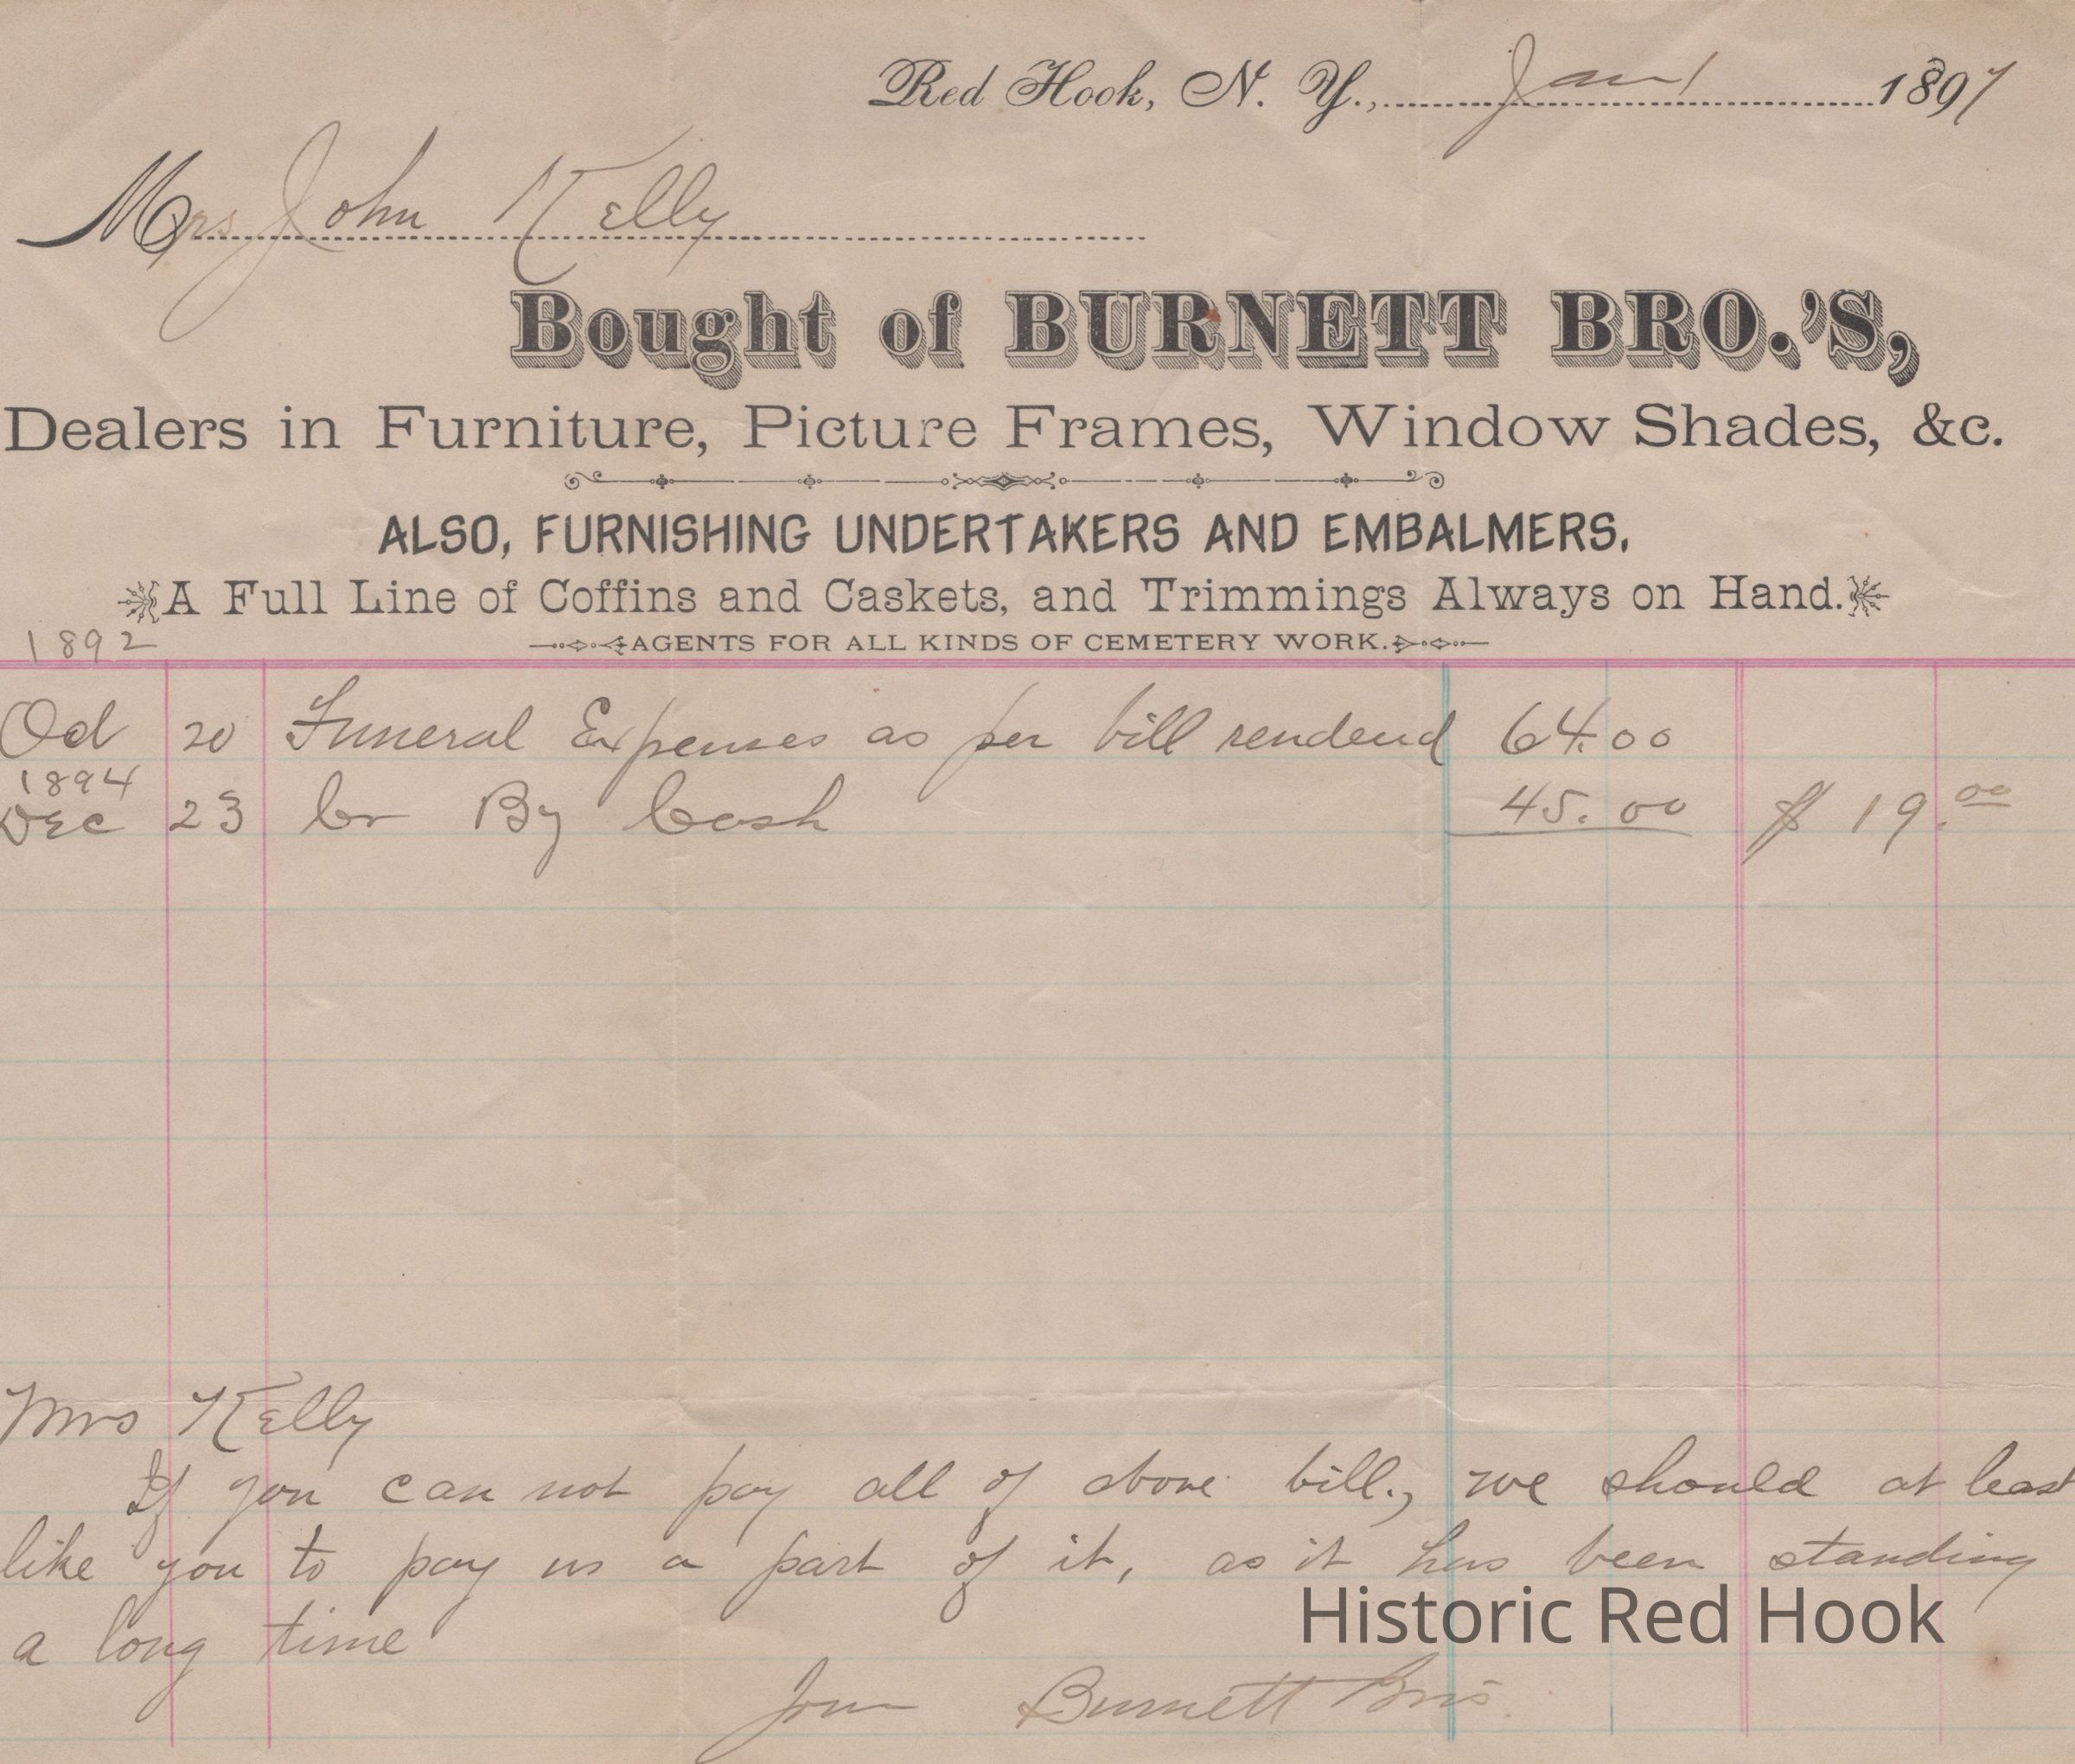 Red Hook, N. Y., Jan 1 1897
Mrs John Kelly
Bought of BURNETT BRO.'S,
Dealers in Furniture, Picture Frames, Window Shades, &c.
ALSO, FURNISHING UNDERTAKERS AND EMBALMERS.
A Full Line of Coffins and Caskets, and Trimmings Always on Hand.
AGENTS FOR ALL KINDS OF CEMETERY WORK.
1892
Oct 20 Funeral Expenses as per bill renderd 64.00
1894
Dec 23 Cr By Cash 45.00 $ 19.00
Mrs Kelly
If you can not pay all of above bill., we should at least
like you to pay us a part of it, as it has been standing
a long time
Historic Red Hook
Burnett Bros